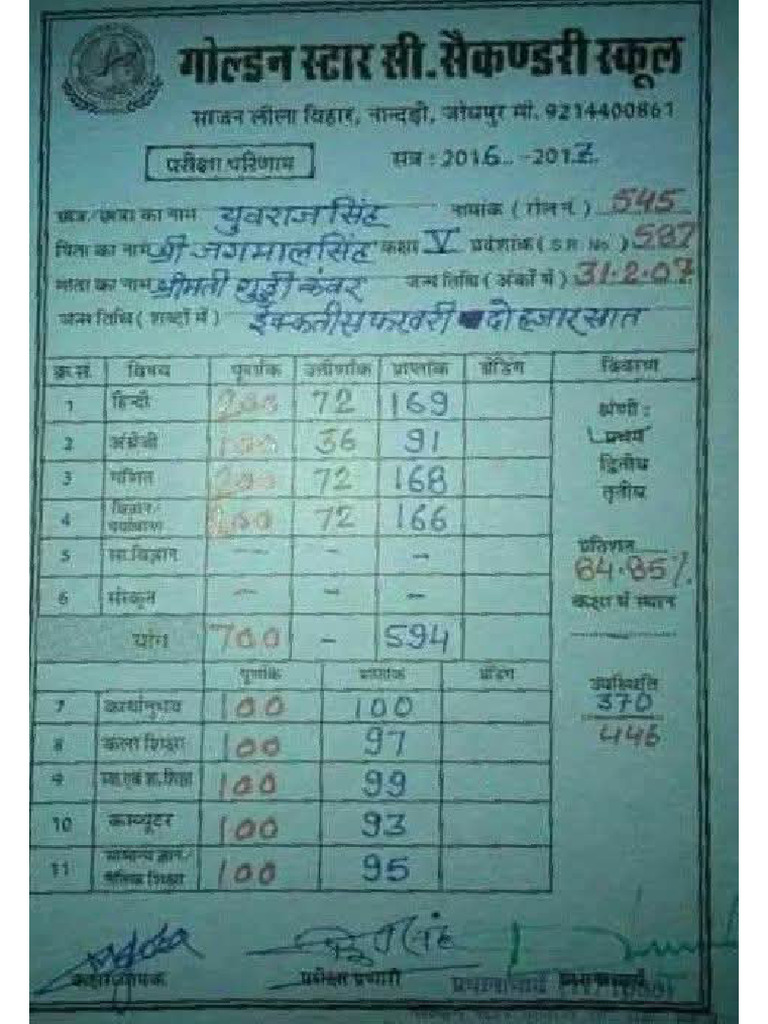 गोल्डन स्टार सी. सैकण्डरी स्कूल
साजन लीला विहार, नान्दड़ी, जोधपुर मो. 9214400861
परीक्षा परिणाम सत्र : 2016 -2017
छात्र/छात्रा का नाम युवराज सिंह नामांक ( रोल नं. ) 545
पिता का नाम श्री जगमालसिंह कक्षा V प्रवेशांक ( S.R. No. ) 587
माता का नाम श्रीमती गुड्डी कंवर जन्म तिथि ( अंकों में ) 31-2-07
जन्म तिथि ( शब्दों में ) ईक्कतीस फरवरी दो हजार सात
क्र.सं. विषय पूर्णांक उत्तीर्णांक प्राप्तांक ग्रेडिंग विवरण
1 हिन्दी 200 72 169
2 अंग्रेजी 100 36 91
3 गणित 200 72 168
4 विज्ञान/पर्यावरण 200 72 166
5 सा.विज्ञान -- -- --
6 संस्कृत -- -- --
योग 700 - 594
श्रेणी :
प्रथम
द्वितीय
तृतीय
प्रतिशत
84.85%
कक्षा में स्थान
उपस्थिति
370
446
पूर्णांक प्राप्तांक ग्रेडिंग
7 कार्यानुभव 100 100
8 कला शिक्षा 100 97
9 स्वा. एवं शा. शिक्षा 100 99
10 कम्प्यूटर 100 93
11 सामान्य ज्ञान/नैतिक शिक्षा 100 95
कक्षाध्यापक परीक्षा प्रभारी